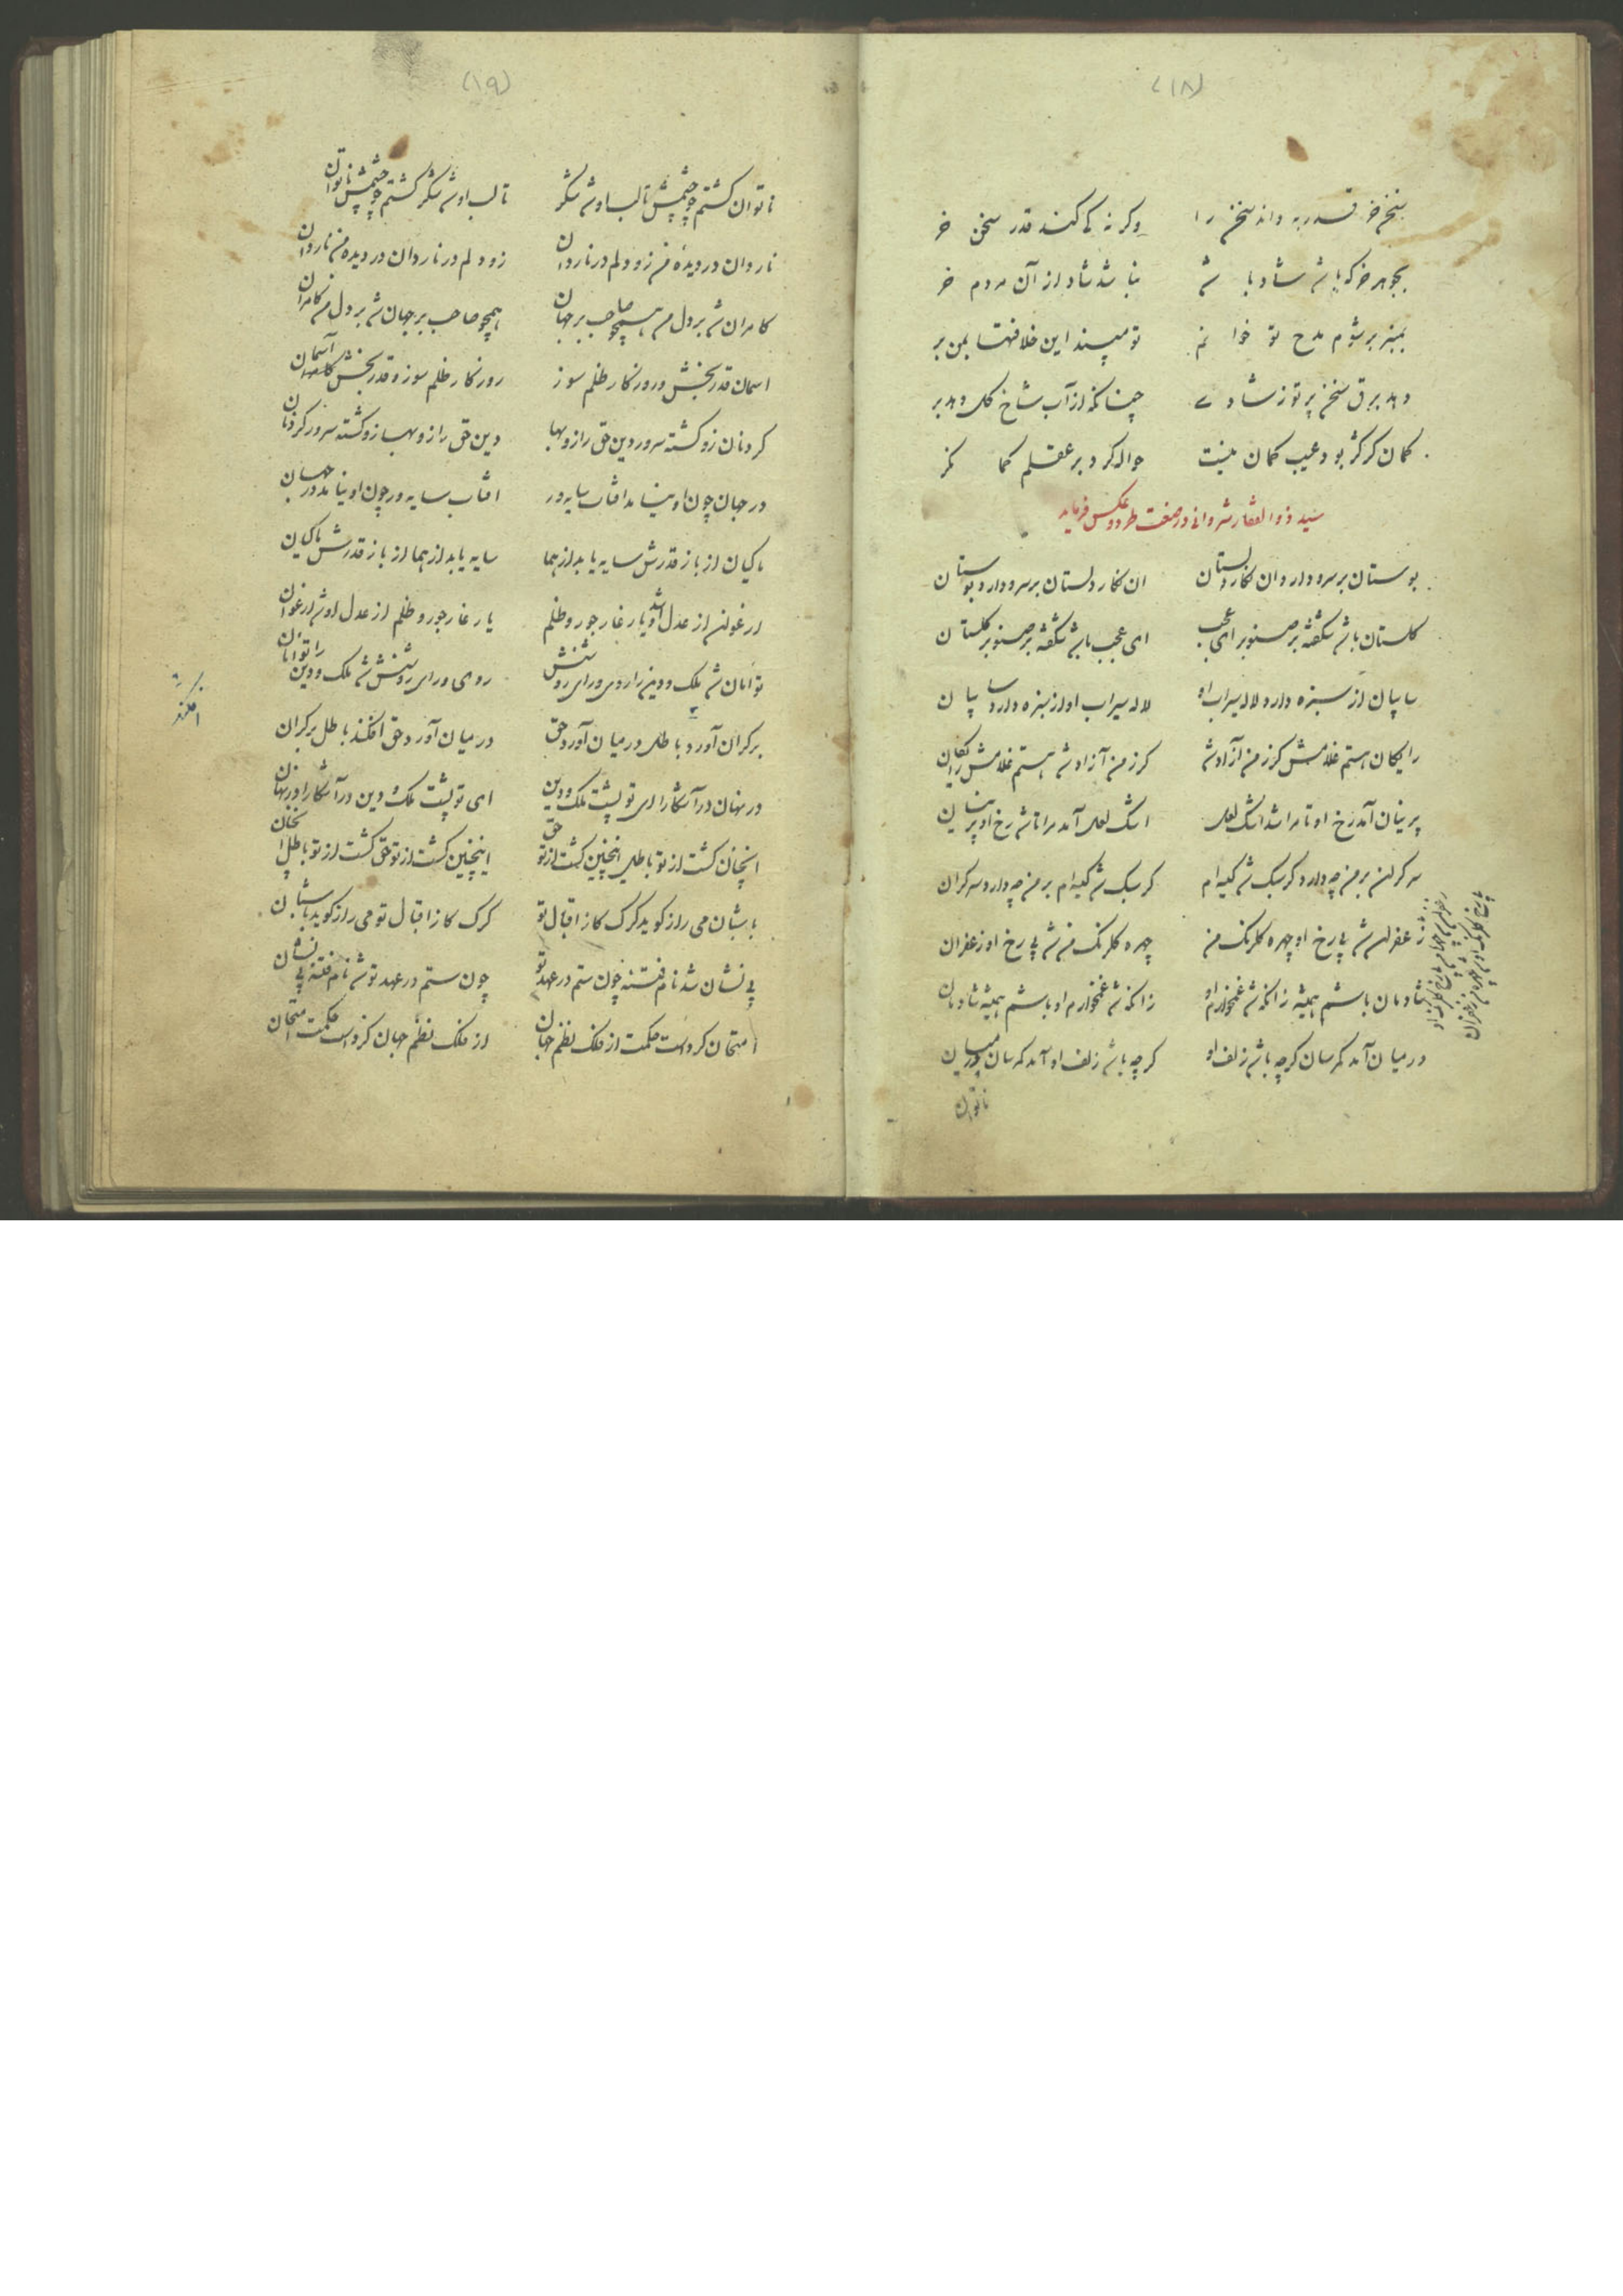 (۱۸)
سخن خر قدر به داند سخن را وکر نه کی کند قدر سخن خر
بجوهر خر که باشد شاد باشد نباشد شاد از آن مردم خر
بمنبر بر شوم مدح تو خوانم تو مپسند این خلافتها بمن بر
دهد برق سخن پرتو ز شادی چنانکه از آب شاخ گل دهد بر
کمان کر کژ بود عیب کمان نیست حواله کرد بر عقلم کمانکر
سید ذوالفقار شروانی در صنعت طرد و عکس فرماید
بوستان بر سرو دارد ان نکار دلستان ان نکار دلستان بر سرو دارد بوستان
کلستان باشد شکفته بر صنوبر ای عجب ای عجب باشد شکفته بر صنوبر کلستان
سایبان از سبزه دارد لاله سیراب او لاله سیراب او از سبزه دارد سایبان
رایکان هستم غلامش کرز من آزاد شد کرز من آزاد شد هستم غلامش رایکان
پرنیان آمد رخ او تا مرا شد اشک لعل اشک لعل آمد مرا تا شد رخ او پرنیان
سرکران بر من چه دارد کر سبک شد کیسه ام کر سبک شد کیسه ام بر من چه دارد سرکران
زعفران شد پی رخ او چهره کلرنک من چهره کلرنک من شد پی رخ او زعفران
شادمان باشم همیشه زانکه شد غمخوارم او زانکه شد غمخوارم او باشم همیشه شادمان
در میان آمد کمرسان کرچه باشد زلف او کرچه باشد زلف او آمد کمرسان در میان
ناتوان
(۱۹)
ناتوان کشتم چو چشمش تا لب او شد شکر تا لب او شد شکر کشتم چو چشمش ناتوان
ناردان در دیده من زو دلم در ناردان زو دلم در ناردان در دیده من ناردان
کامران شد بر دل من همچو صاحب بر جهان همچو صاحب بر جهان شد بر دل من کامران
اسمان قدر بخش و روزکار ظلم سوز روزکار ظلم سوز و قدر بخش آسمان
کردنان زو کشته سرور دین حق را زو بها دین حق را زو بها زو کشته سرور کردنان
در جهان چون او نیامد افتاب سایه ور افتاب سایه ور چون او نیامد در جهان
ماکیان از باز قدرش سایه یابد از هما سایه یابد از هما از باز قدرش ماکیان
ارغوان از عدل او شد یار غار جور و ظلم یار غار جور و ظلم از عدل او شد ارغوان
توامان شد ملک و دین را روی و رای روشنش روی و رای روشنش شد ملک و دین را توامان
بر کران آورد باطل در میان آورد حق در میان آورد حق افکند باطل بر کران
افکند
در نهان در آشکارا ای تو پشت ملک و دین ای تو پشت ملک و دین در آشکارا در نهان
انچنان کشت از تو باطل اینچنین کشت از تو حق اینچنین کشت از تو حق کشت از تو باطل انچنان
با شبان می راز کوید کرک کاز اقبال تو کرک کاز اقبال تو می راز کوید با شبان
بی نشان شد نام فتنه چون ستم در عهد تو چون ستم در عهد تو شد نام فتنه بی نشان
امتحان کرداست حکمت از فلک نظم جهان از فلک نظم جهان کرداست حکمت امتحان